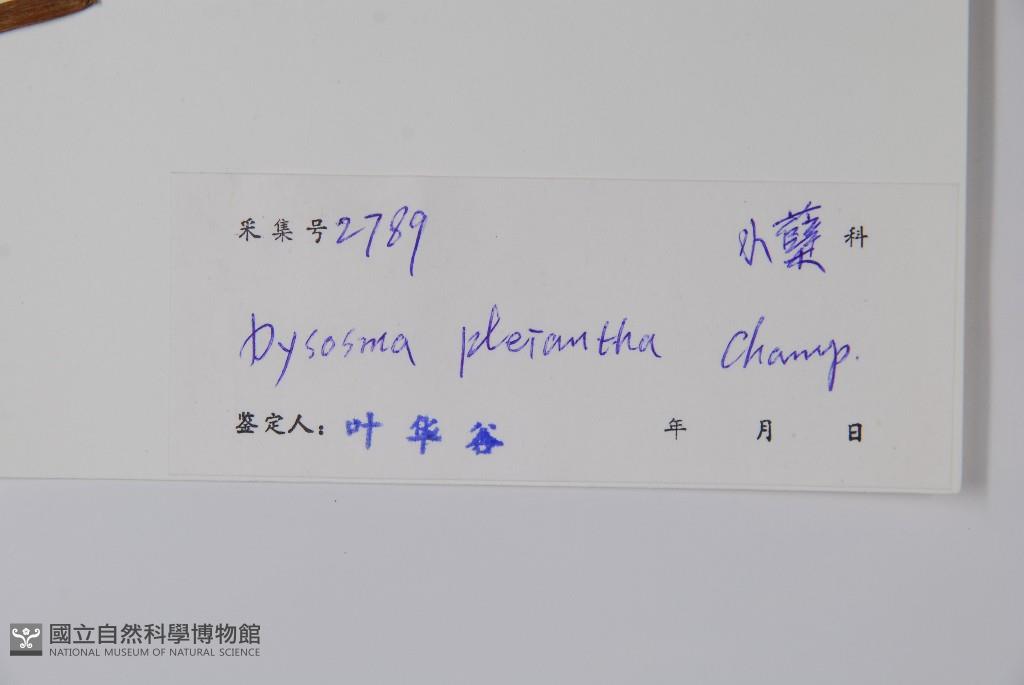 采集号2789 小蘗科
Dysosma pleiantha Champ.
鉴定人：叶华谷 年 月 日
國立自然科學博物館
NATIONAL MUSEUM OF NATURAL SCIENCE